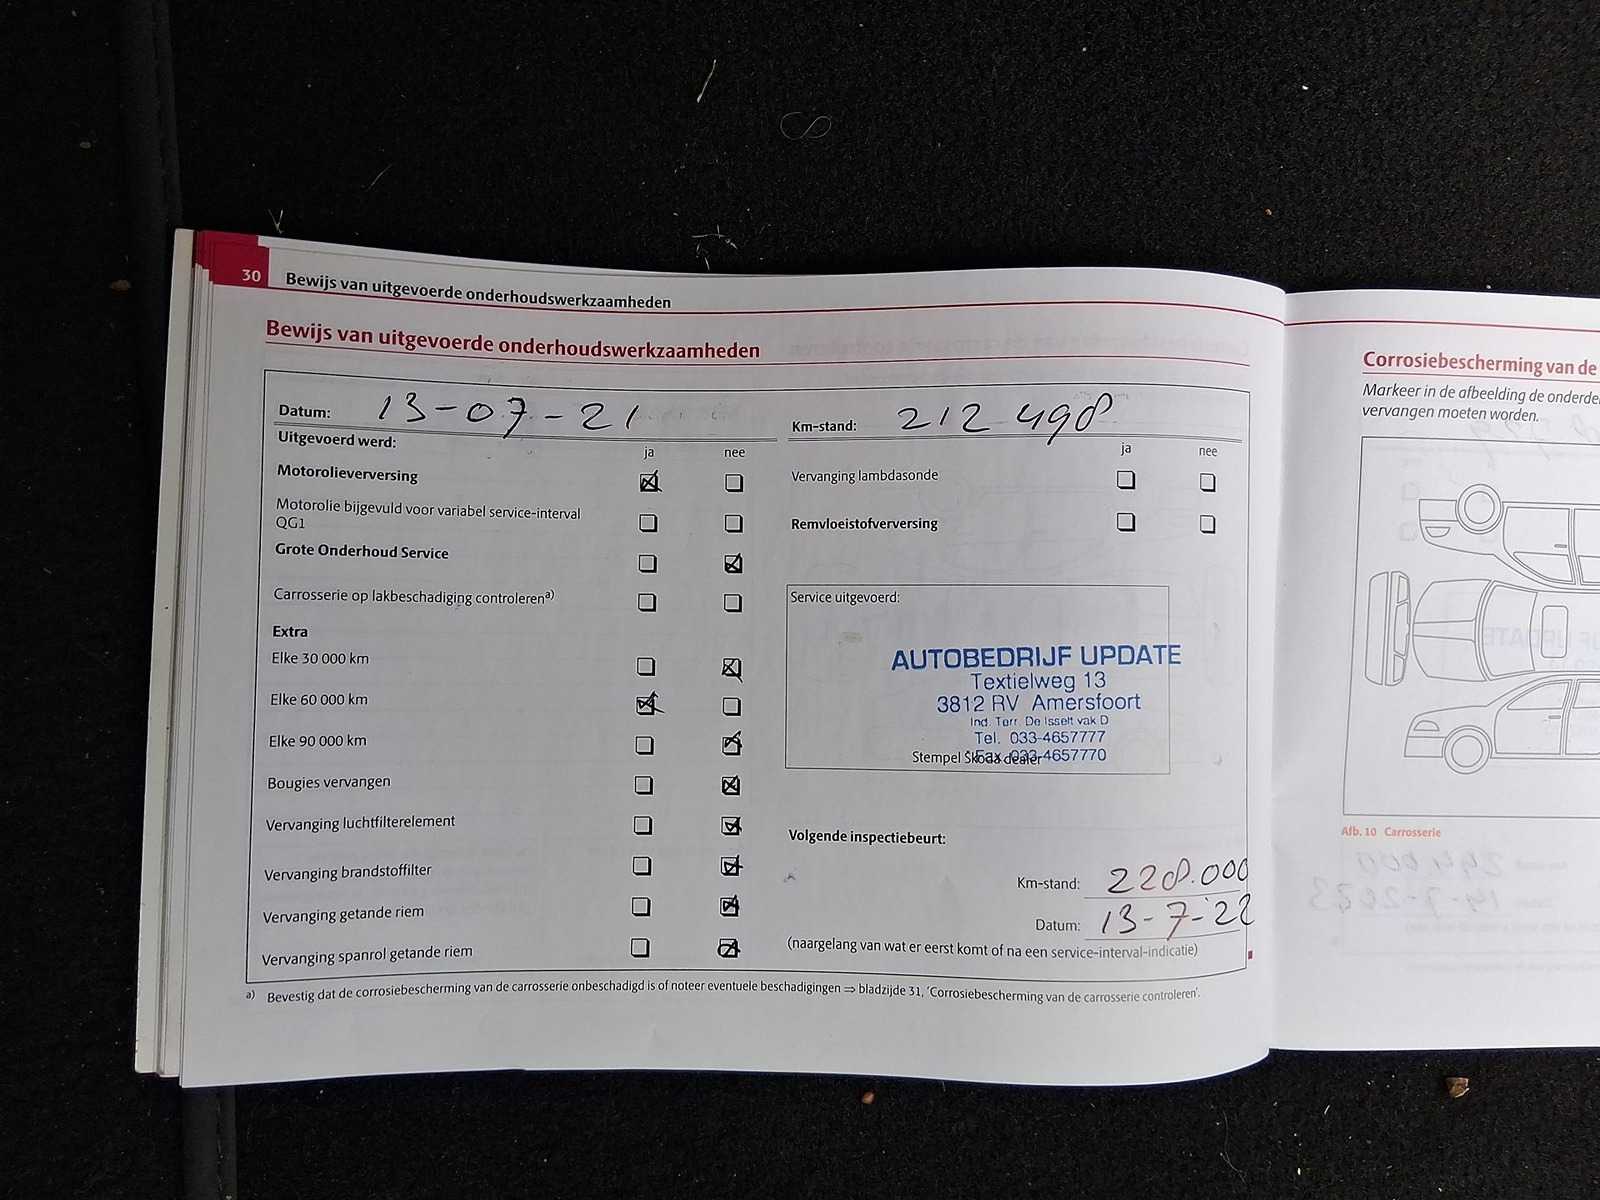 30 Bewijs van uitgevoerde onderhoudswerkzaamheden
Bewijs van uitgevoerde onderhoudswerkzaamheden
Datum: 13-07-21
Uitgevoerd werd:
ja nee
Motorolieverversing
Motorolie bijgevuld voor variabel service-interval
QG1
Grote Onderhoud Service
Carrosserie op lakbeschadiging controleren a)
Extra
Elke 30 000 km
Elke 60 000 km
Elke 90 000 km
Bougies vervangen
Vervanging luchtfilterelement
Vervanging brandstoffilter
Vervanging getande riem
Vervanging spanrol getande riem
Km-stand: 212 498
ja nee
Vervanging lambdasonde
Remvloeistofverversing
Service uitgevoerd:
AUTOBEDRIJF UPDATE
Textielweg 13
3812 RV Amersfoort
Ind. Terr. De Isselt vak D
Tel. 033-4657777
Fax 033-4657770
Stempel Škoda dealer
Volgende inspectiebeurt:
Km-stand: 228.000
Datum: 13-7-22
(naargelang van wat er eerst komt of na een service-interval-indicatie)
a) Bevestig dat de corrosiebescherming van de carrosserie onbeschadigd is of noteer eventuele beschadigingen ⇒ bladzijde 31, 'Corrosiebescherming van de carrosserie controleren'.
Corrosiebescherming van de
Markeer in de afbeelding de onderde
vervangen moeten worden.
Afb. 10 Carrosserie